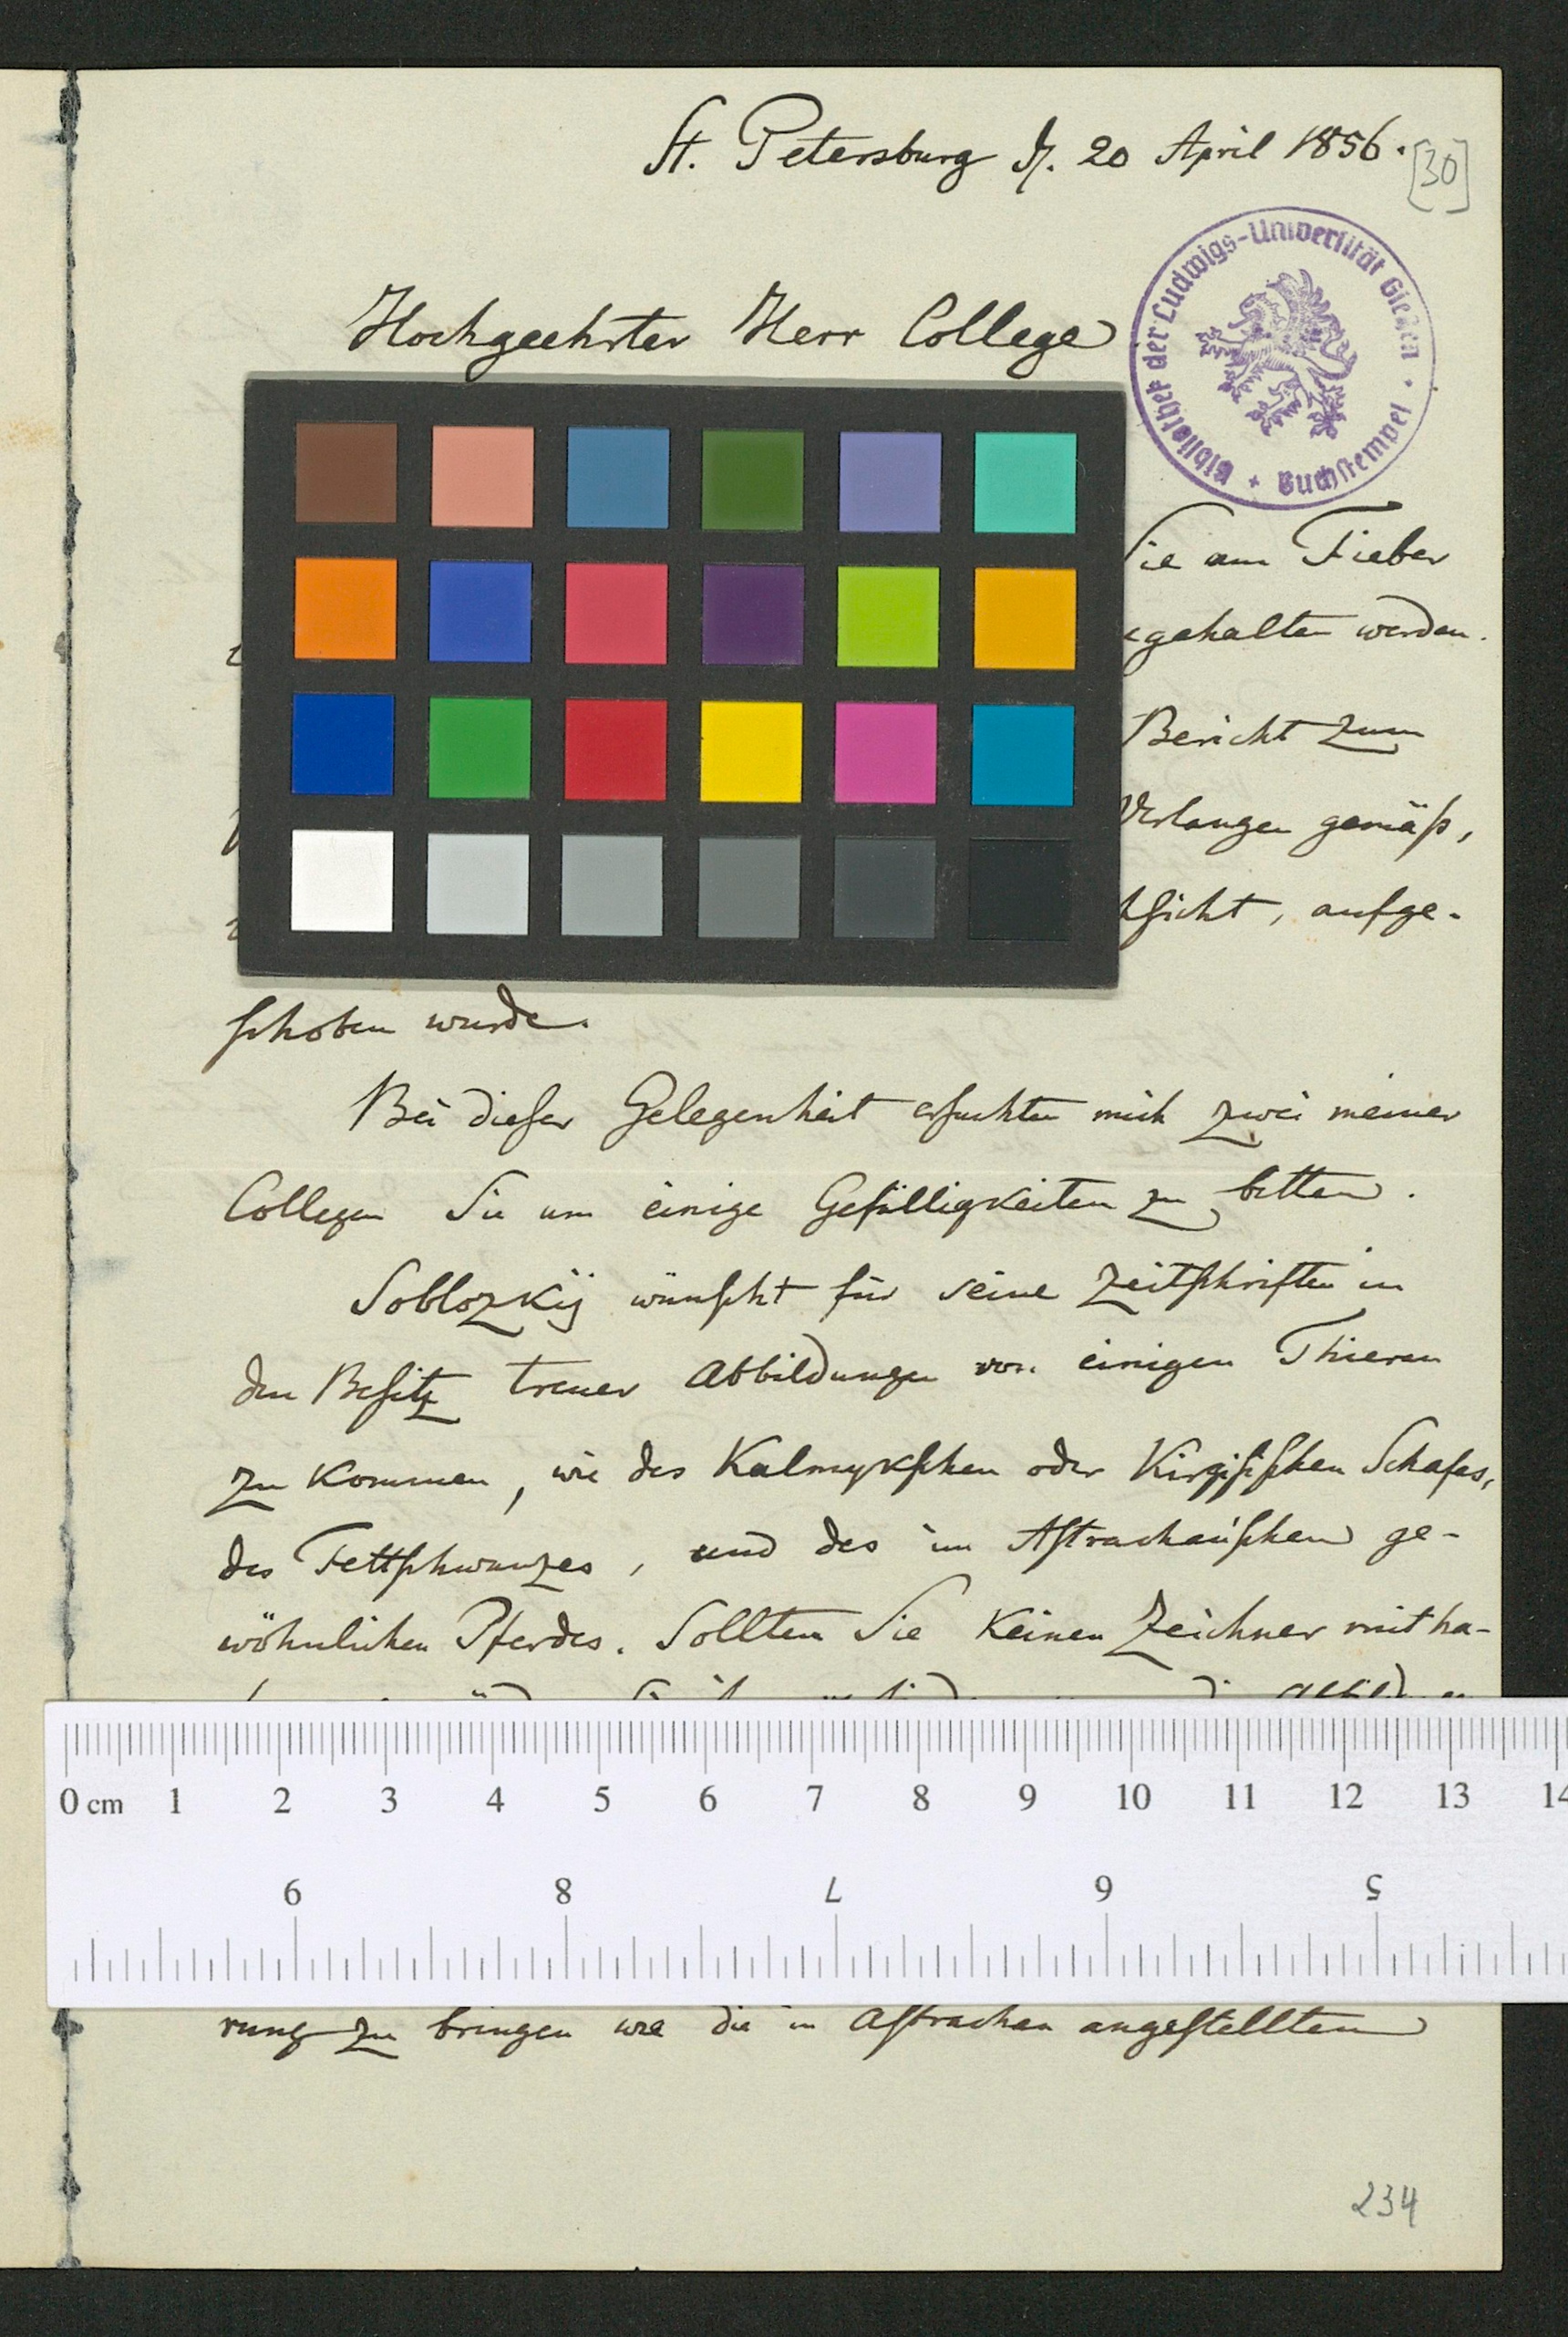 St. Petersburg d. 20 April 1856.
[30]
Hochgeehrter Herr College
Bibliothek der Ludwigs-Universität Gießen · Buchstempel
Sie am Fieber
gehalten werden.
Bericht zum
Verlangen gemäß,
sicht, aufge-
schoben wurde.
Bei dieser Gelegenheit ersuchten mich zwei meiner
Collegen Sie um einige Gefälligkeiten zu bitten.
Soblozkij wünscht für seine Zeitschriften in
den Besitz treuer Abbildungen von einigen Thieren
zu kommen, wie des Kalmykschen oder Kirgisischen Schafes,
des Fettschwanzes, und des im Astrachanischen ge-
wöhnlichen Pferdes. Sollten Sie keinen Zeichner mit ha-
0 cm 1 2 3 4 5 6 7 8 9 10 11 12 13 14
9 8 7 6 5
rung zu bringen wie die in Astrachan angestellten
234